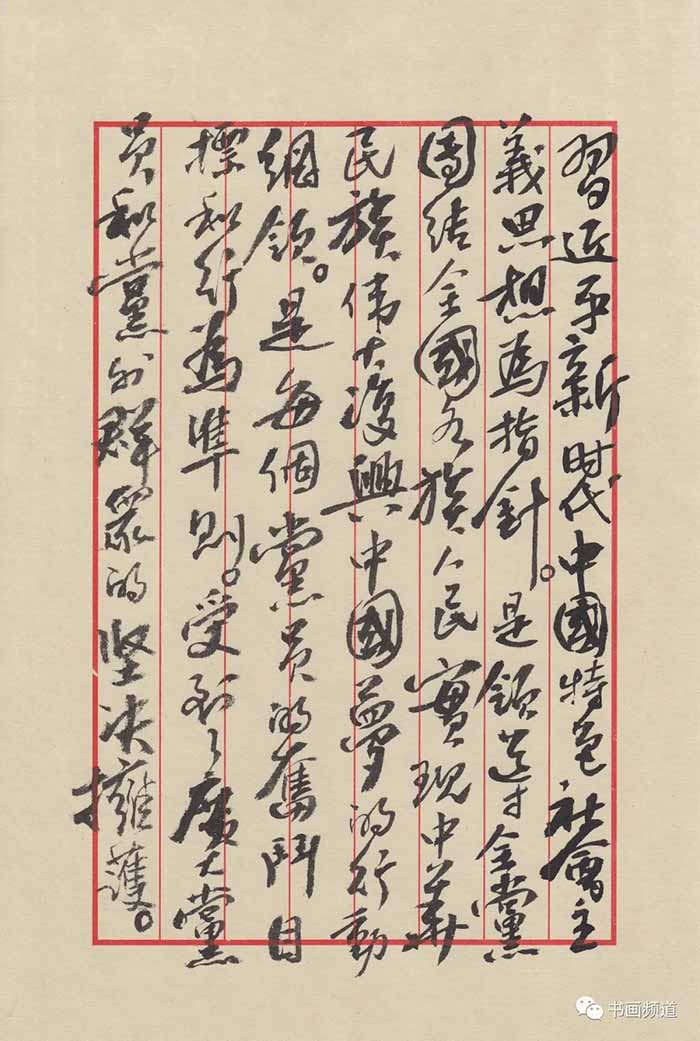 習近平新时代中國特色社會主
義思想為指針。是領导全黨
團结全國各族人民實現中華
民族伟大復興中國夢的行動
綱領。是每個黨员的奮鬥目
標和行為準則。受到了廣大黨
员和黨外群眾的坚决擁護。
书画频道